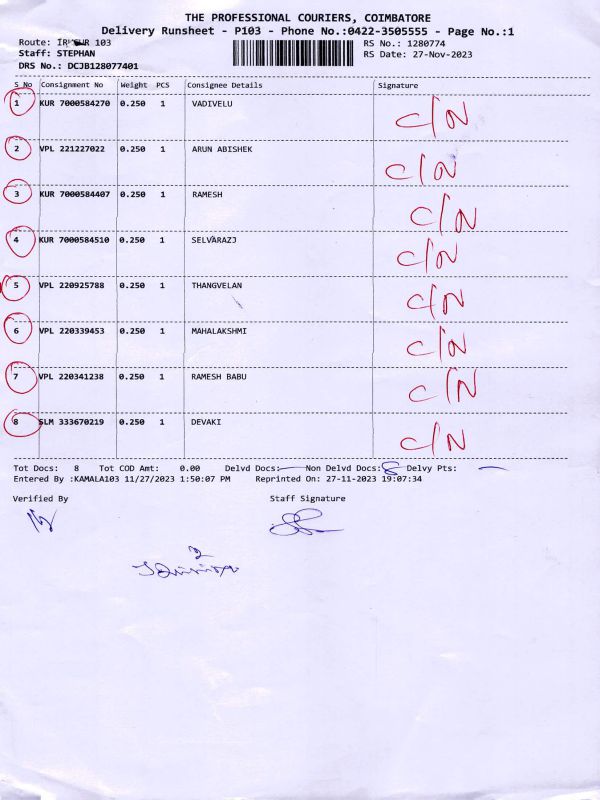 THE PROFESSIONAL COURIERS, COIMBATORE
Delivery Runsheet - P103 - Phone No.:0422-3505555 - Page No.:1
Route: 103
RS No.: 1280774
Staff: STEPHAN
RS Date: 27-Nov-2023
DRS No.: DCJB128077401
S No Consignment No Weight PCS Consignee Details Signature
1 KUR 7000584270 0.250 1 VADIVELU C/N
2 VPL 221227022 0.250 1 ARUN ABISHEK C/N
3 KUR 7000584407 0.250 1 RAMESH C/N
4 KUR 7000584510 0.250 1 SELVARAZJ C/N
5 VPL 220925788 0.250 1 THANGVELAN C/N
6 VPL 220339453 0.250 1 MAHALAKSHMI C/N
7 VPL 220341238 0.250 1 RAMESH BABU C/N
8 SLM 333670219 0.250 1 DEVAKI C/N
Tot Docs: 8 Tot COD Amt: 0.00 Delvd Docs: — Non Delvd Docs: 8 Delvy Pts: —
Entered By :KAMALA103 11/27/2023 1:50:07 PM Reprinted On: 27-11-2023 19:07:34
Verified By Staff Signature